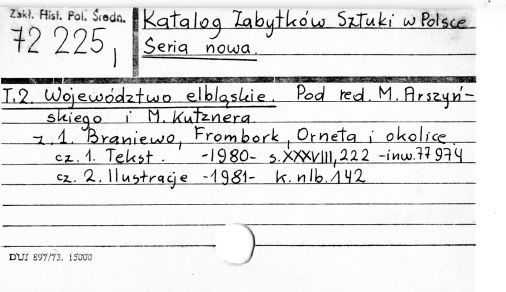 Zakł. Hist. Pol. Średn.
72 225,
Katalog Zabytków Sztuki w Polsce
Seria nowa.
T.2. Województwo elbląskie. Pod red. M. Arszyń-
skiego i M. Kutznera.
z.1. Braniewo, Frombork, Orneta i okolice.
cz. 1. Tekst. -1980- s. XXXVIII, 222 -inw. 77 974
cz. 2. Ilustracje -1981- k. nlb. 142
DUJ 897/73. 15000